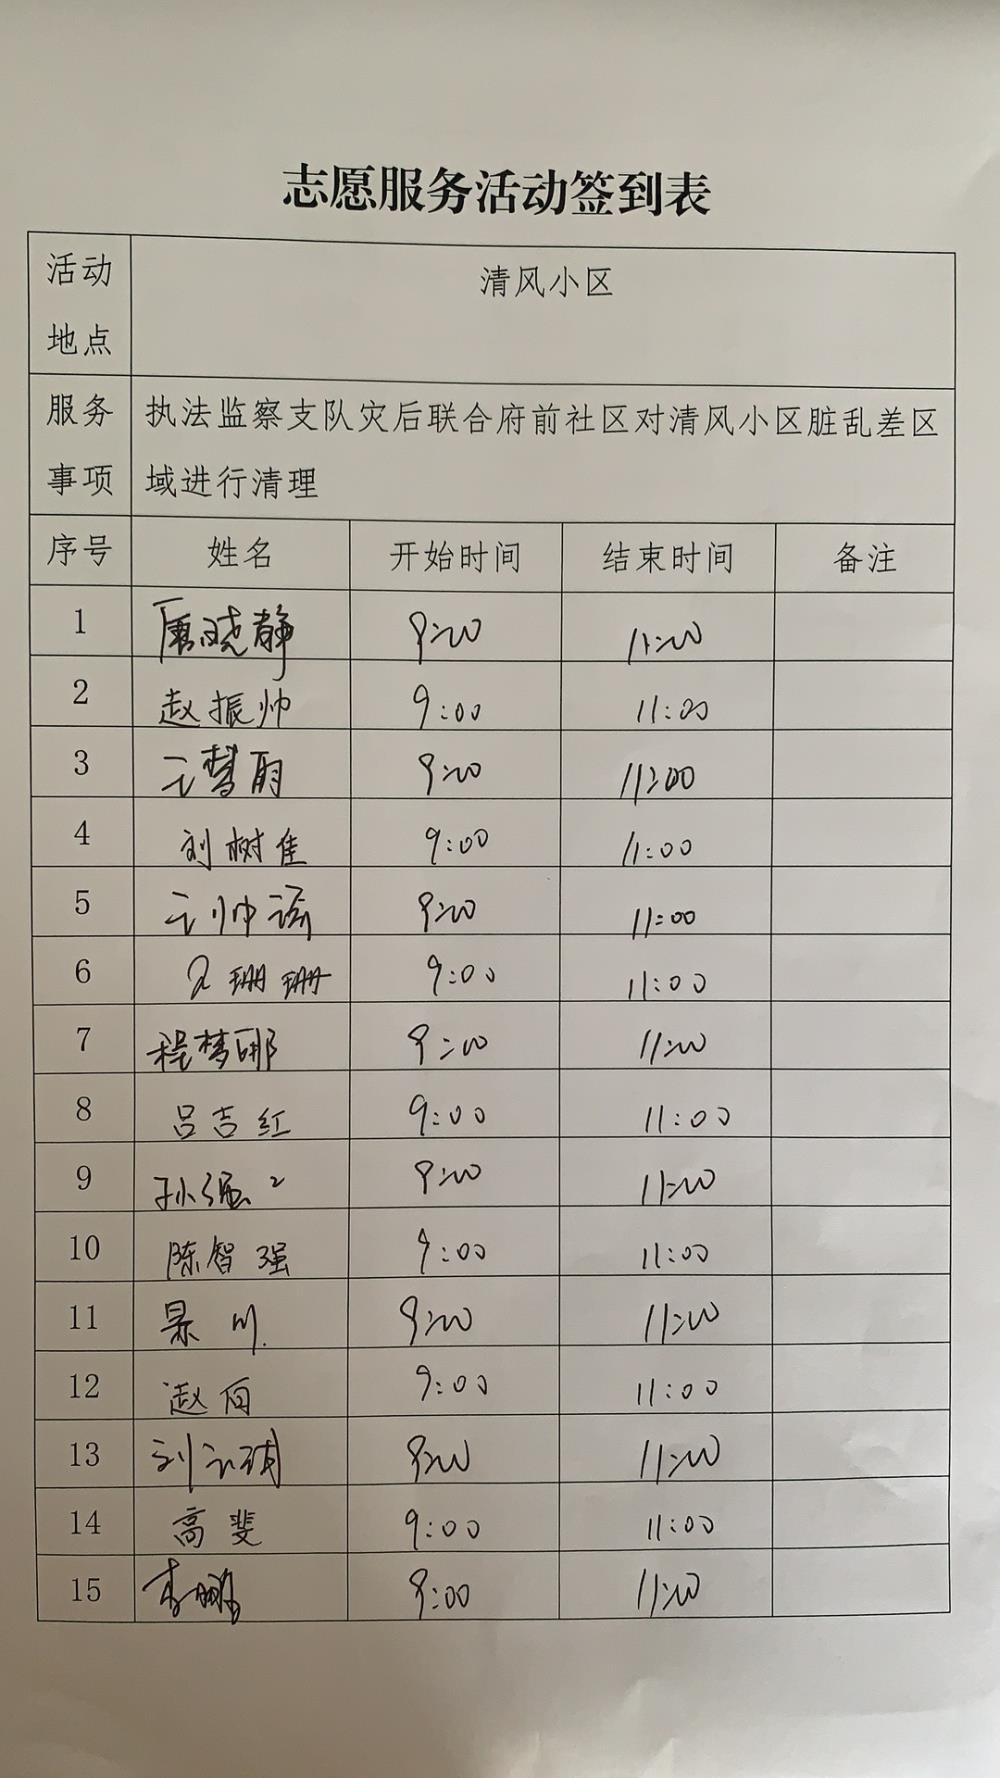 志愿服务活动签到表
活动地点 清风小区
服务事项 执法监察支队灾后联合府前社区对清风小区脏乱差区
域进行清理
序号 姓名 开始时间 结束时间 备注
1 唐晓静 9:00 11:00
2 赵振帅 9:00 11:00
3 9:00 11:00
4 刘树佳 9:00 11:00
5 9:00 11:00
6 珊珊 9:00 11:00
7 程梦娜 9:00 11:00
8 吕吉红 9:00 11:00
9 孙强 9:00 11:00
10 陈智强 9:00 11:00
11 9:00 11:00
12 赵 9:00 11:00
13 刘 9:00 11:00
14 高斐 9:00 11:00
15 李鹏 9:00 11:00